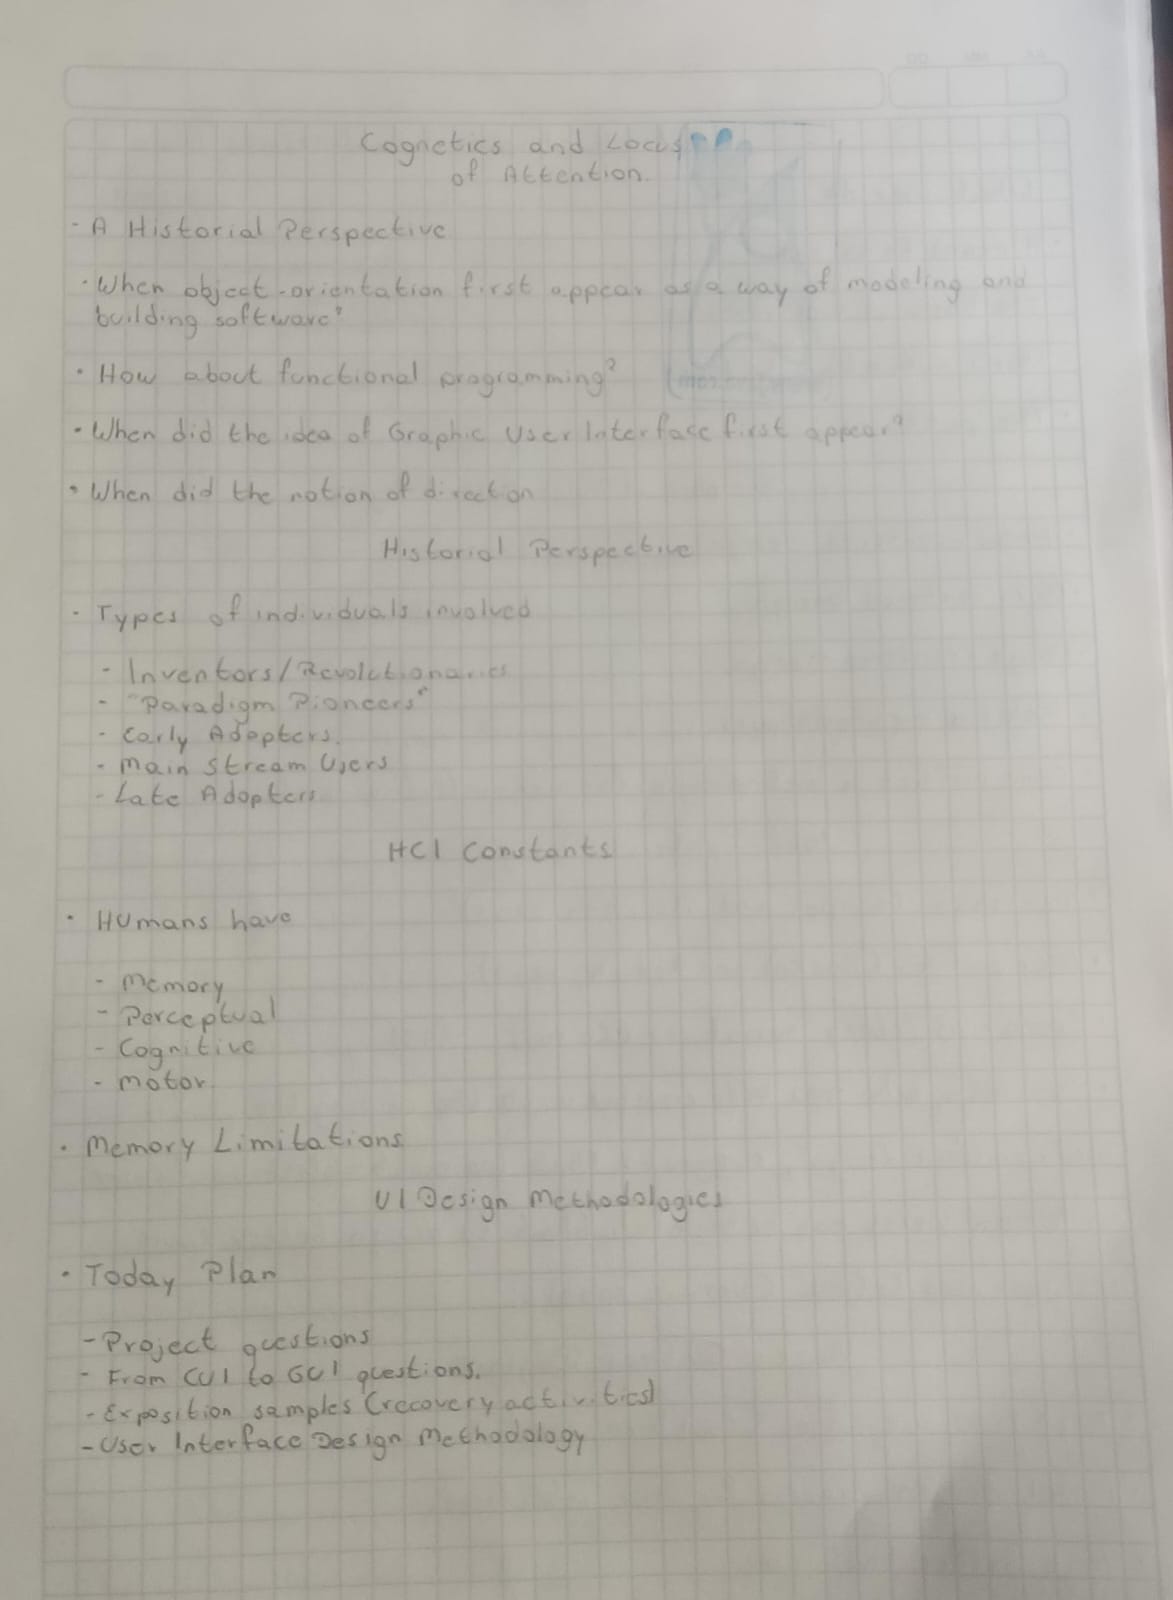 Cognetics and Locus
of Attention.
- A Historial Perspective
· When object-orientation first appear as a way of modeling and
building software?
· How about functional programming?
· When did the idea of Graphic User Interface first appear?
· When did the notion of direction
Historial Perspective
- Types of individuals involved
- Inventors/Revolutionaries
- "Paradigm Pioneers"
- Early Adopters.
- Main Stream Users
- Late Adopters
HCI Constants
· Humans have
- Memory
- Perceptual
- Cognitive
- Motor.
· Memory Limitations.
UI Design Methodologies
· Today Plan
- Project questions
- From CUI to GUI questions.
- Exposition samples (recovery activities)
- User Interface Design Methodology